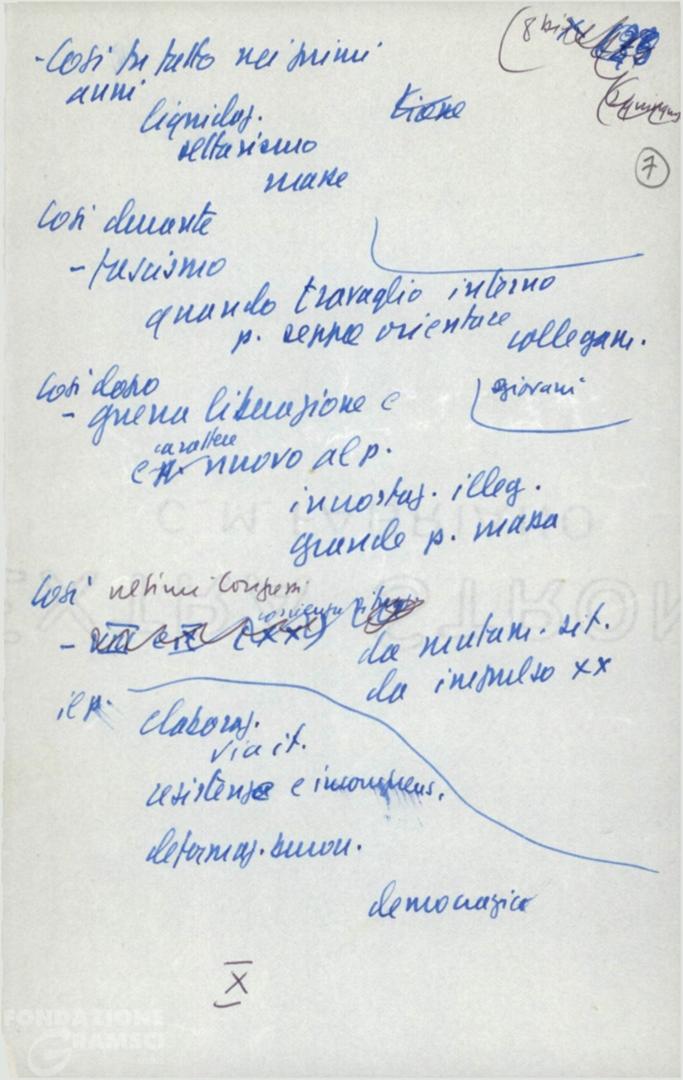 (8 bis
7
- Così fu tutto nei primi
anni
liquidaz.
settarismo
masse
Così durante
- fascismo
quando travaglio interno
p. seppe orientare
collegam.
giovani
Così dopo
- guerra liberazione e
carattere
e nuovo al p.
innestaz. illeg.
grande p. massa
Così nei Congressi
da mutam. sit.
da impulso XX
il p.
elaboraz.
via it.
resistenze e incomprens.
deformaz. buroc.
democrazia
X
FONDAZIONE
GRAMSCI